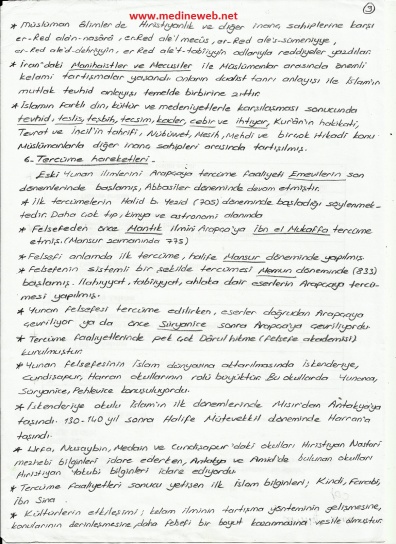 www.medineweb.net
3
* Müslüman âlimler de Hıristiyanlık ve diğer inanç sahiplerine karşı
er-Red ale'n-nasârâ, er-Red ale'l mecûs, er-Red ale's-sümeniyye,
er-Red ale'd-dehriyyîn, er Red ale't-tabîiyyîn adlarıyla reddiyeler yazdılar.
* İran'daki Manihaistler ve Mecusiler ile Müslümanlar arasında önemli
kelami tartışmalar yaşandı onların dualist tanrı anlayışı ile İslam'ın
mutlak tevhid anlayışı temelde birbirine zıttır.
* İslamın farklı din, kültür ve medeniyetlerle karşılaşması sonucunda
tevhid, teslis, teşbih, tecsim, kader, cebir ve ihtiyar, Kur'ân'ın hakikati,
Tevrat ve İncil'in tahrifi, Nübüvvet, Nesih, Mehdi ve birçok itikadi konu
Müslümanlarla diğer inanç sahipleri arasında tartışılmış.
6- Tercüme hareketleri -
Eski Yunan ilimlerini Arapçaya tercüme faaliyeti Emevilerin son
dönemlerinde başlamış, Abbasiler döneminde devam etmiştir.
* ilk tercümelerin Halid b. Yezid (705) döneminde başladığı söylenmek-
tedir. Daha çok tıp, kimya ve astronomi alanında
* Felsefeden önce Mantık ilmini Arapça'ya İbn el Mukaffa tercüme
etmiş. (Mansur zamanında 775)
* Felsefi anlamda ilk tercüme, halife Mansur döneminde yapılmış.
* Felsefenin sistemli bir şekilde tercümesi Memun döneminde (833)
başlamış. İlahiyyat, tabiiyyat, ahlaka dair eserlerin Arapçaya tercü-
mesi yapılmış.
* Yunan felsefesi tercüme edilirken, eserler doğrudan Arapçaya
çevriliyor ya da önce Süryanice sonra Arapçaya çevriliyordu.
* Tercüme faaliyetlerinde pek çok Dârul hikme (felsefe akademisi)
kurulmuştur.
* Yunan felsefesinin İslam dünyasına aktarılmasında İskenderiye,
Cundişapur, Harran okullarının rolü büyüktür. Bu okullarda Yunanca,
Süryanice, Pehlevice konuşuluyordu.
* İskenderiye okulu İslam'ın ilk dönemlerinde Mısır'dan Antakya'ya
taşındı. 130-140 yıl sonra Halife Mütevekkil döneminde Harran'a
taşındı.
* Urfa, Nusaybin, Medain ve Cundişapur'daki okulları Hıristiyan Nasturi
mezhebi bilginleri idare ederken, Antakya ve Amid'de bulunan okulları
Hıristiyan Yakubi bilginleri idare ediyordu.
* Tercüme faaliyetleri sonucu yetişen ilk İslam bilginleri; Kindi, Farabi,
İbn Sina.
* Kültürlerin etkileşimi; kelam ilminin tartışma yönteminin gelişmesine,
konularının derinleşmesine, daha felsefi bir boyut kazanmasına vesile olmuştur.